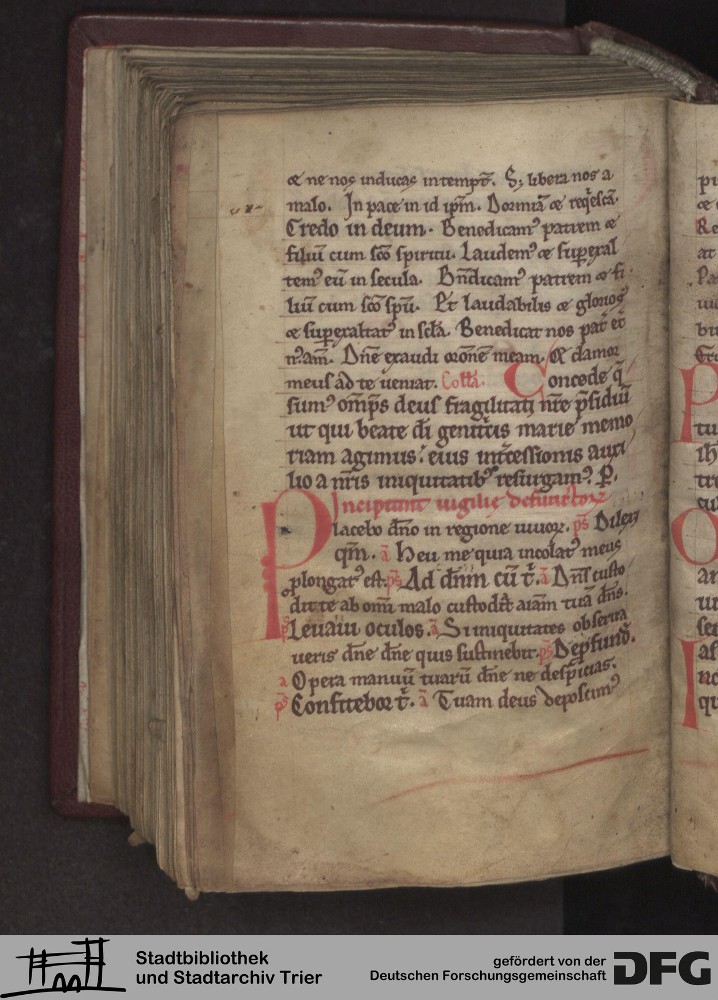 ⁊ ne nos inducas in tempt̄. S; libera nos a
malo. In pace in id ip̄m. Dormiā ⁊ req̇escā.
Credo in deum. Benedicamꝰ patrem ⁊
filiū cum sc̄o spiritu. Laudemꝰ ⁊ suꝑexal
temꝰ eū in secula. Bn̄dicamꝰ patrem ⁊ fi
liū cum sc̄o spū. Et laudabilis ⁊ gloriosꝰ
⁊ suꝑexaltatꝰ in scl̄a. Benedicat nos pat̄ et
n.am̄. Dn̄e exaudi or̄onē meam. Et clamor
meus ad te ueniat. Coll̄a. Concede q̄
sumꝰ om̄ps deus fragilitati nr̄e p̄sidiū
ut qui beate di genitͥcis marie memo
riam agimus. eius int̄cessionis auxi
lio a nr̄is iniquitatibꝰ resurgamꝰ. P.
Incipiunt uigilie defunctorꝝ
Placebo dn̄o in regione uiuoꝝ. ps̄ Dilexi
qm̄. a Heu me quia incolatꝰ meus
ꝓlongatꝰ est. ps̄ Ad dn̄m cū t̄. a Dn̄s custo
dit te ab om̄i malo custodit aīam tuā dn̄s.
ps̄ Leuaui oculos. a Si iniquitates obserua
ueris dn̄e dn̄e quis sustinebit. ps̄ De ꝓfund̄.
a Opera manuū tuarū dn̄e ne despicias.
ps̄ Confitebor t̄. a Tuam deus deposcimꝰ
Stadtbibliothek
und Stadtarchiv Trier
gefördert von der
Deutschen Forschungsgemeinschaft
DFG